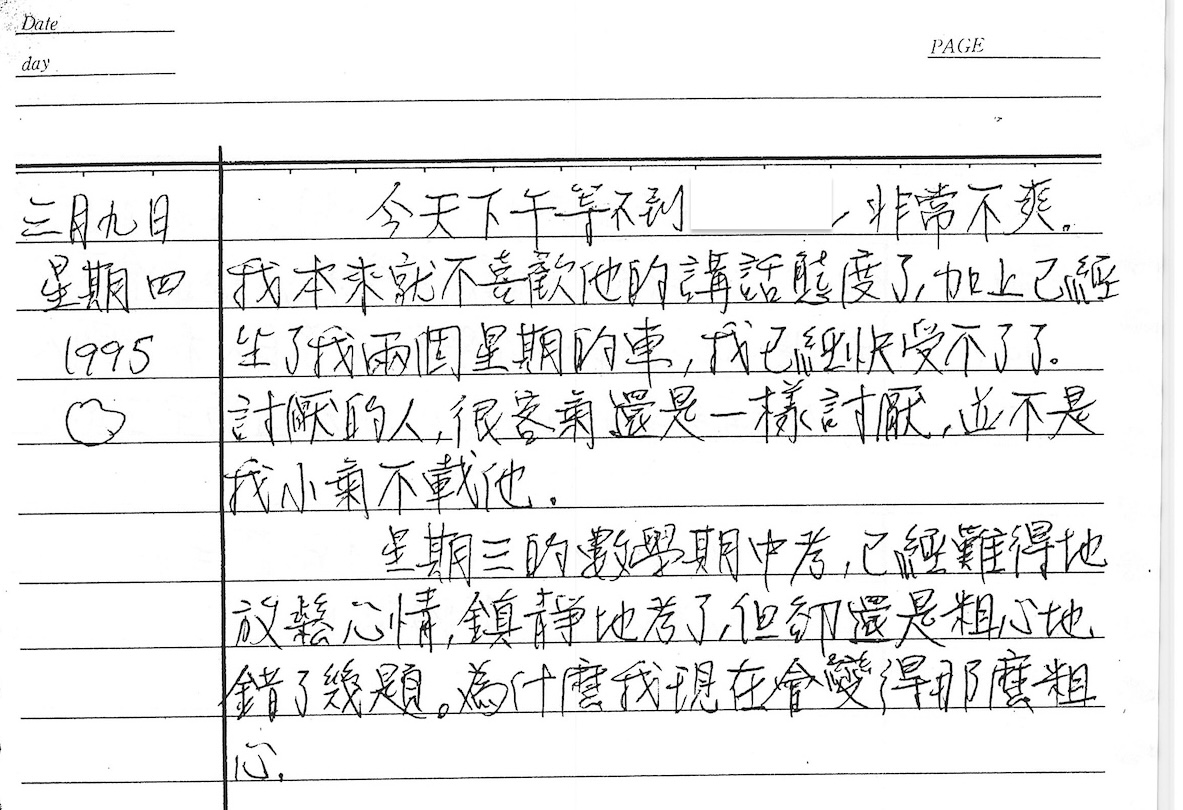 Date
day
PAGE
三月九日
星期四
1995
今天下午等不到 ，非常不爽。
我本來就不喜歡他的講話態度了，加上已經
坐了我兩個星期的車，我已經快受不了了。
討厭的人，很客氣還是一樣討厭，並不是
我小氣不載他．
星期三的數學期中考，已經難得地
放鬆心情，鎮靜地考了，但卻還是粗心地
錯了幾題。為什麼我現在會變得那麼粗
心．